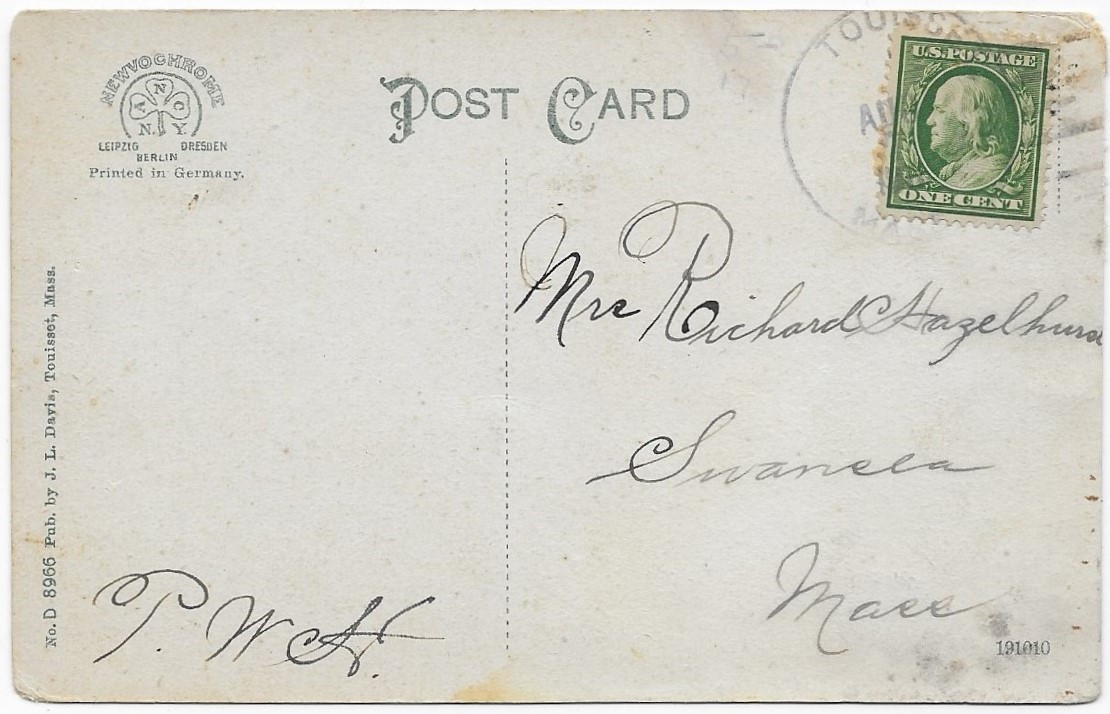 NEWVOCHROME
A N C
N. Y.
LEIPZIG DRESDEN
BERLIN
Printed in Germany.
POST CARD
U.S. POSTAGE
ONE CENT
No. D 8966 Pub. by J. L. Davis, Touisset, Mass.
Mrs Richard Hazelhurs
Swansea
Mass
P. W. H.
191010